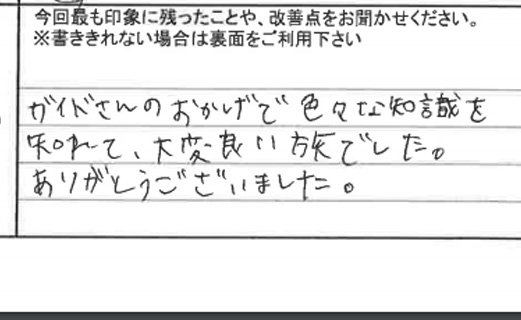 今回最も印象に残ったことや、改善点をお聞かせください。
※書ききれない場合は裏面をご利用下さい
ガイドさんのおかげで色々な知識を
知れて、大変良い旅でした。
ありがとうございました。